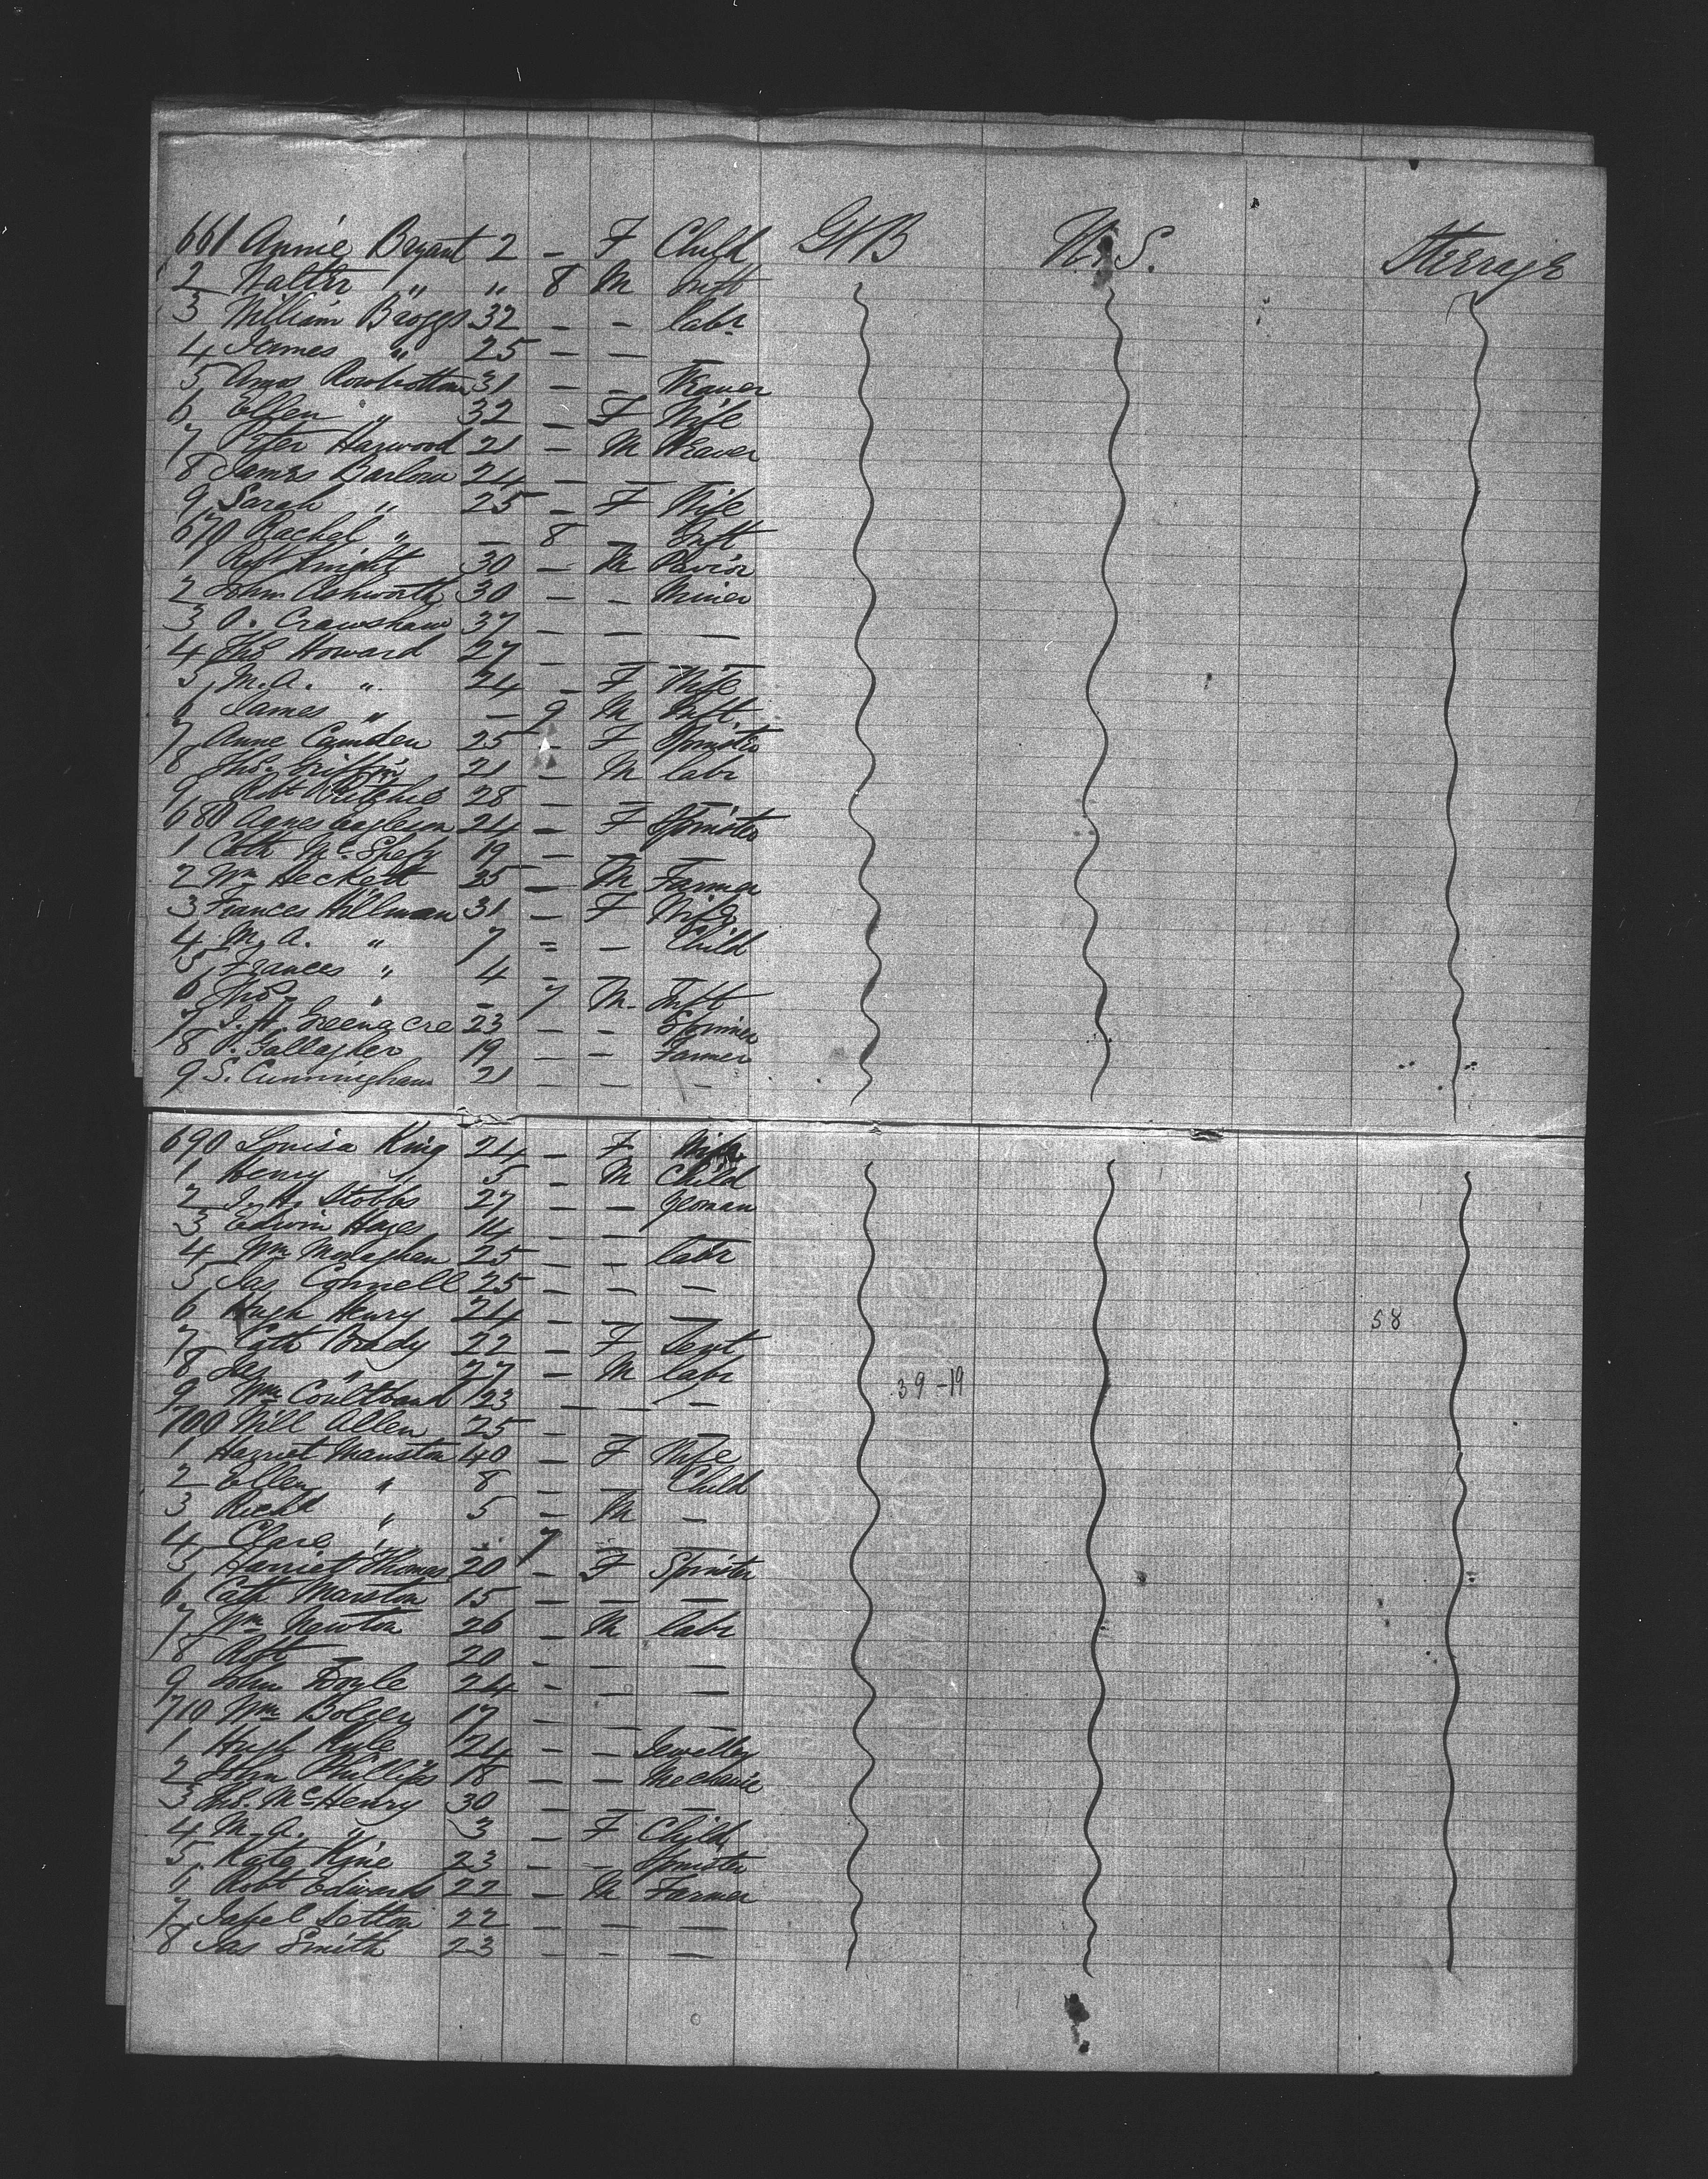 661 Annie Bryant 2 – F Child GtB U.S. Steerage
2 Walter " " 8 M Inft
3 William Broggs 32 – – labr
4 James " 25 – –
5 Amos Rowbottom 31 – – Weaver
6 Ellen " 32 – F Wife
7 Peter Harwood 21 – M Weaver
8 James Barlow 24 – – –
9 Sarah " 25 – F Wife
670 Rachel " – 8 – Inft
1 Robt Knight 30 – M Pavior
2 John Ashworth 30 – – Miner
3 A. Crawshaw 37 – – –
4 Thos Howard 27 – – –
5 M.A. " 24 – F Wife
6 James " – 9 M Inft
7 Anne Camden 25 – F Spinster
8 Thos. Griffin 21 – M labr
9 Robt Ritchie 28 – – –
680 Agnes 24 – F Spinster
1 Cath 19 – – –
2 Wm Heckett 25 – M Farmer
3 Frances Hillman 31 – F Wife
4 M.A. " 7 = – Child
5 Frances " 4 – – –
6 Thos " – 7 M. Inft
7 J.H. Greenacre 23 – – Spinner
8 P. Gallagher 19 – – Farmer
9 S. Cunningham 21 – – –
690 Louisa King 24 – F Wife
1 Henry " 5 – M Child
2 J.H. Stobbs 27 – – yeoman
3 Edwin Hayes 14 – – –
4 Wm Monaghan 25 – – labr
5 Jas Connell 25 – – –
6 Hugh Henry 24 – – – 58
7 Cath Brady 22 – F Servt
8 Jas " 27 – M labr 39-19
9 Wm 23 – – –
700 Will Allen 25 – – –
1 Harriet 40 – F Wife
2 Ellen " 8 – – Child
3 Richd " 5 – M –
4 Clare " – 7 – –
5 Harriet Thomas 20 – F Spinster
6 Cath Marston 15 – – –
7 Wm Newton 26 – M labr
8 Robt – 20 – – –
9 John Doyle 24 – – –
710 Wm Bolger 17 – – –
1 Hugh 24 – – Jeweller
2 John Phillips 18 – – Mechanic
3 Thos. McHenry 30 – – –
4 M.A. " 3 – F Child
5 Kate 23 – – Spinster
6 Robt Edwards 22 – M Farmer
7 22 – – –
8 Jas Smith 23 – – –